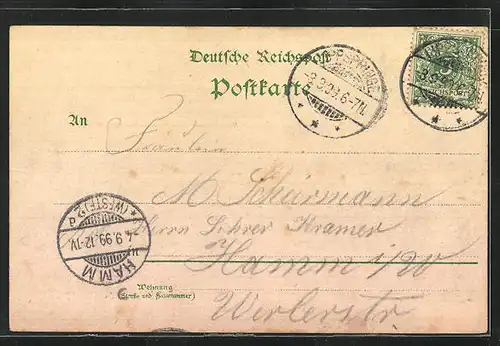 Deutsche Reichspost
Postkarte
An
Fräulein
M. Scheürmann
Herrn Lehrer Kramer
Hamm i/W
Werlerstr
Wohnung
(Straße und Hausnummer)
* (WESTF.) *
4.9.99.12-1V
HAMM